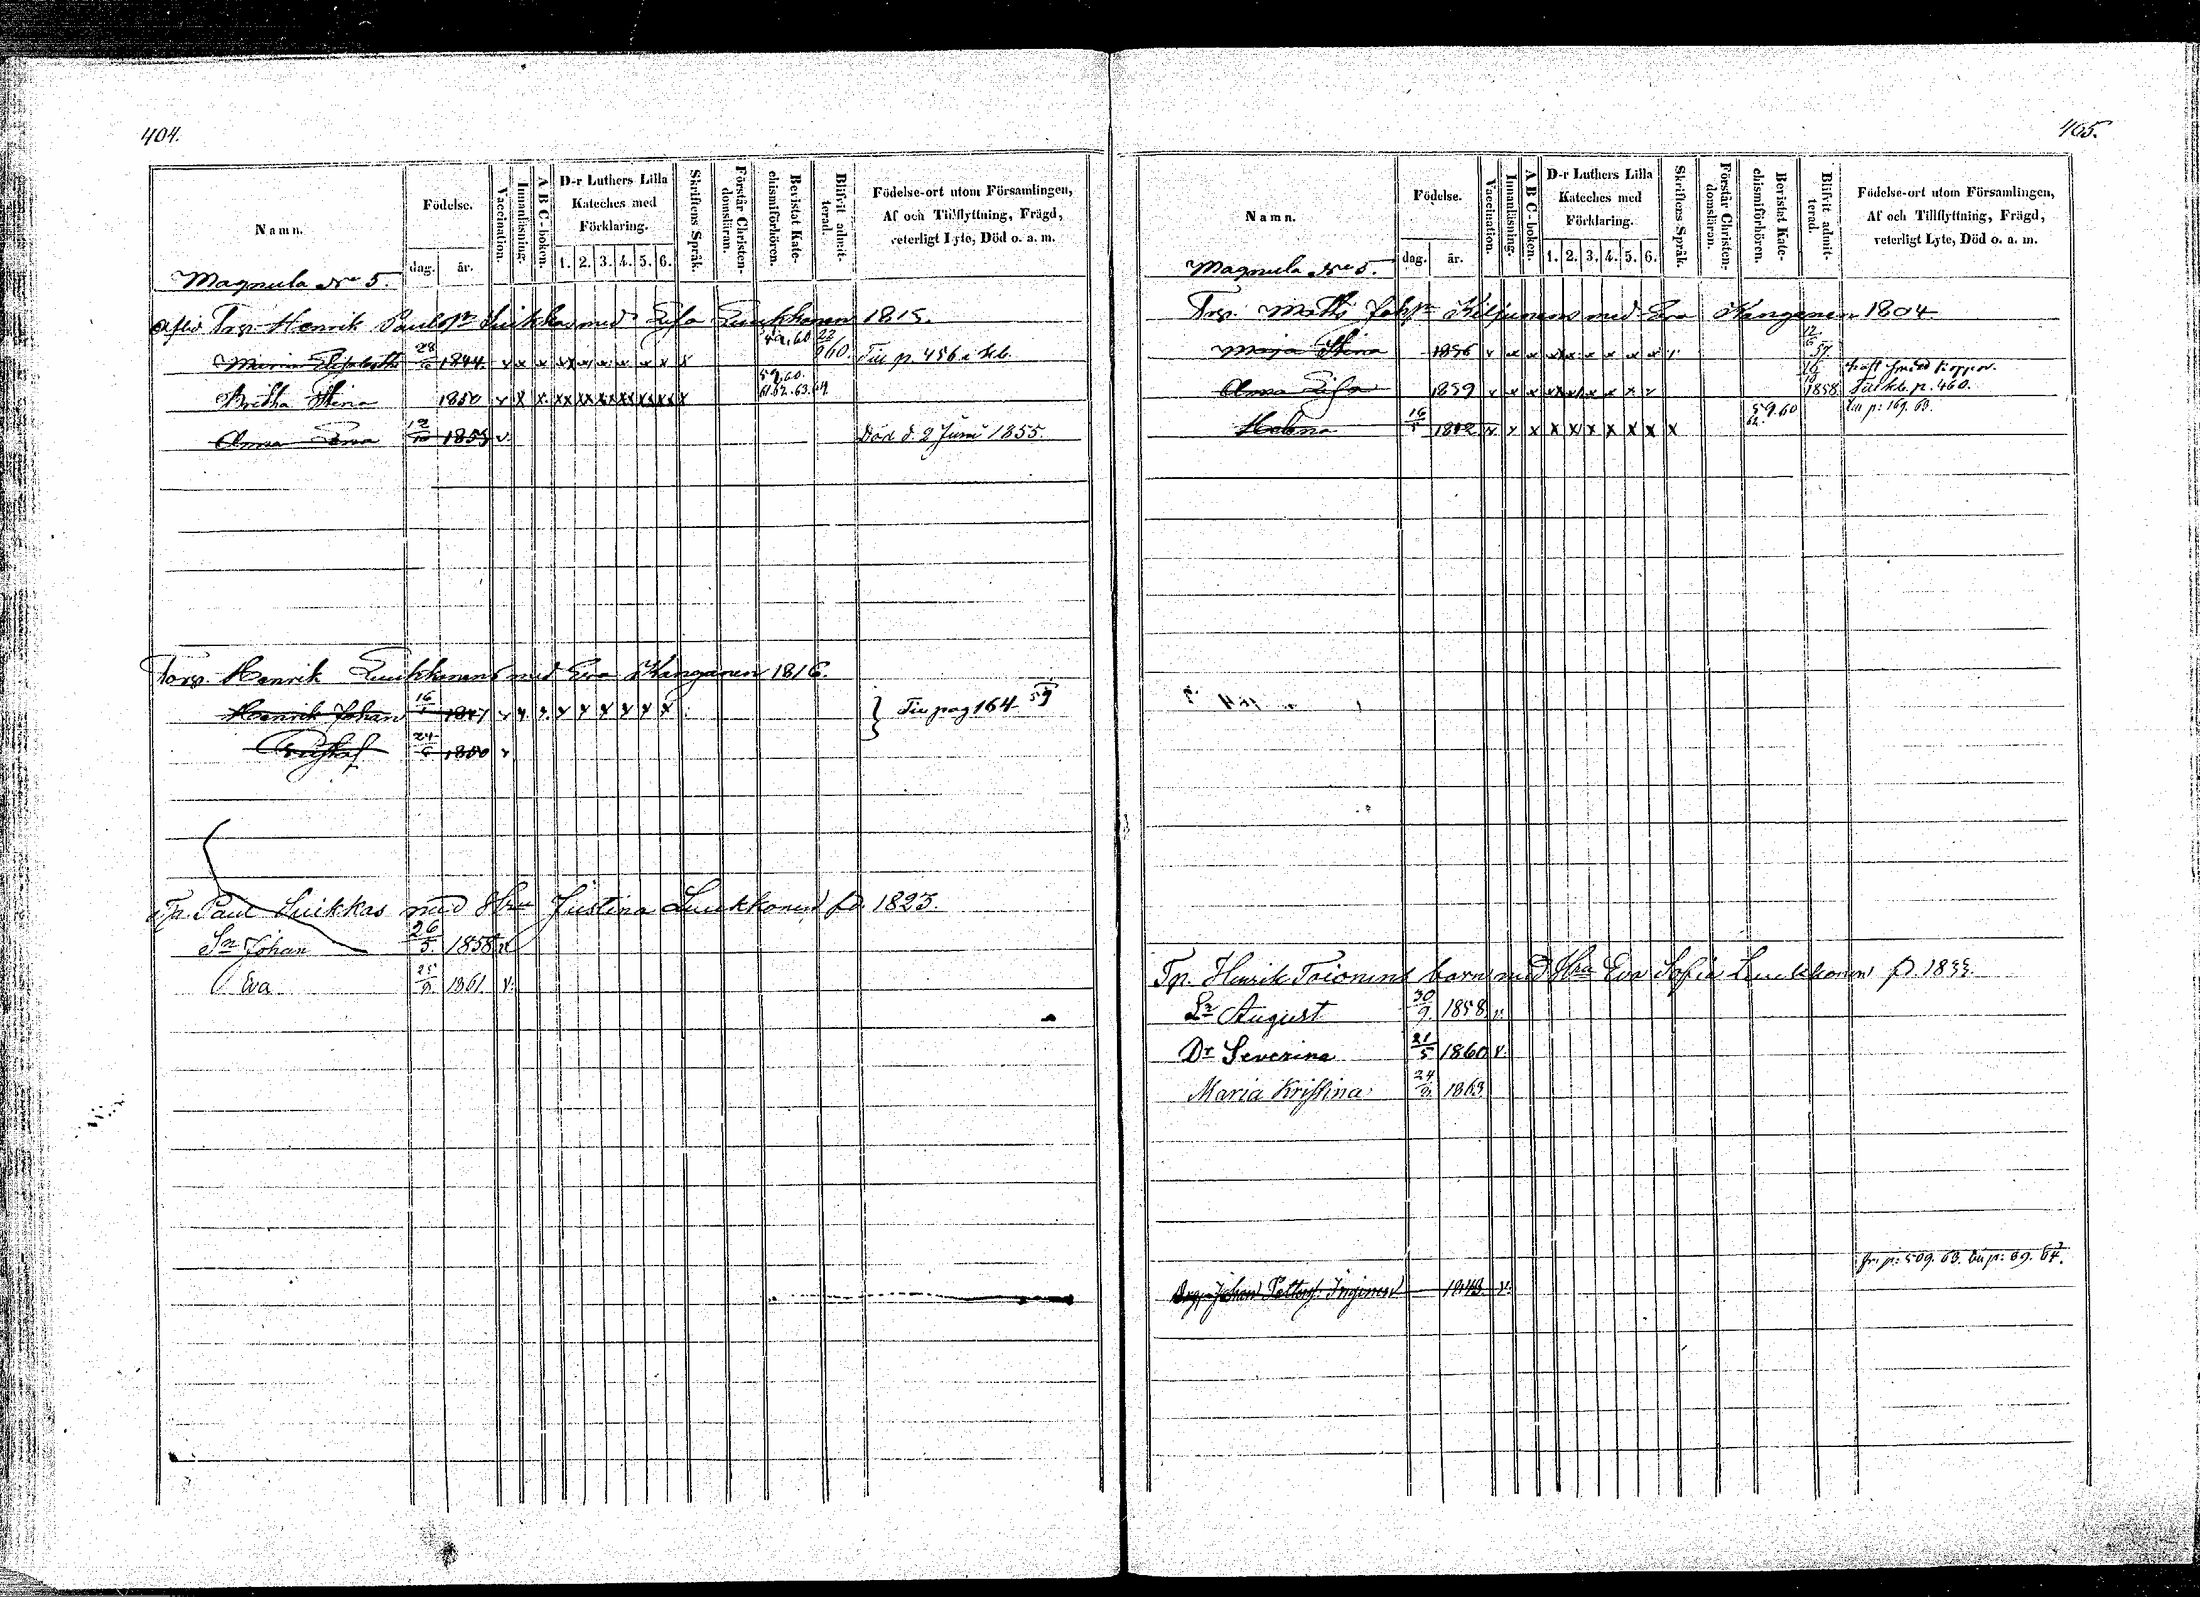 404.
Namn.
Födelse.
dag.
år.
Vaccination.
Innanläsning.
A B C-boken.
D-r Luthers Lilla Kateches med Förklaring.
1. 2. 3. 4. 5. 6.
Skriftens Språk.
Förstår Christendomsläran.
Bevistat Katechismiförhören.
Blifvit admitterad.
Födelse-ort utom Församlingen,
Af och Tillflyttning, Frägd,
veterligt Lyte, Död o. a. m.
Magnula No 5.
Torp. Henrik Paulsson Suikkas med Luukkonen 1815.
Maria Elisabeth 28 1844. v x x xx x x x x x x 59.60 22 860. Till p. 456
Britha Stina 1850 v x x xx xx xx xx xx xx x 59.60. 61.62.63.64.
Anna Eva 12 1855 v. Död d. 2 Juni 1855.
Torp. Henrik Luukkonens med Eva Kanganen 1816.
Henrik Johan 16 1847 v x x x x x x x x } Till pag 164 59
24 1850 v
Tp. Paul Suikkas med Hru Justina Luukkonen fd. 1823.
Sn Johan 26/5. 1858 v
Eva 25 1861. v.
405.
Namn.
Födelse.
dag.
år.
Vaccination.
Innanläsning.
A B C-boken.
D-r Luthers Lilla Kateches med Förklaring.
1. 2. 3. 4. 5. 6.
Skriftens Språk.
Förstår Christendomsläran.
Bevistat Katechismiförhören.
Blifvit admitterad.
Födelse-ort utom Församlingen,
Af och Tillflyttning, Frägd,
veterligt Lyte, Död o. a. m.
Magnula No 5.
Torp. Kiljunens med Eva Kanganen 1804
Maja Stina 1836 v x x xx x x x x x 12/6 57.
Anna 1839 v x x xx x x x x v 1858 p. 460.
Helena 16 1842 v v x x x x x x x x 59.60 62. till p: 169. 63.
Tp. Henrik Toionens barn med Hru Eva Sofia Luukkonen fd. 1833.
Sn August 30/9. 1858. v.
Dr Severina 21/5 1860 v.
Maria Kristina 24 1863
fr. p: 509. 63. till p: 39. 64.
Johan 1843. v.